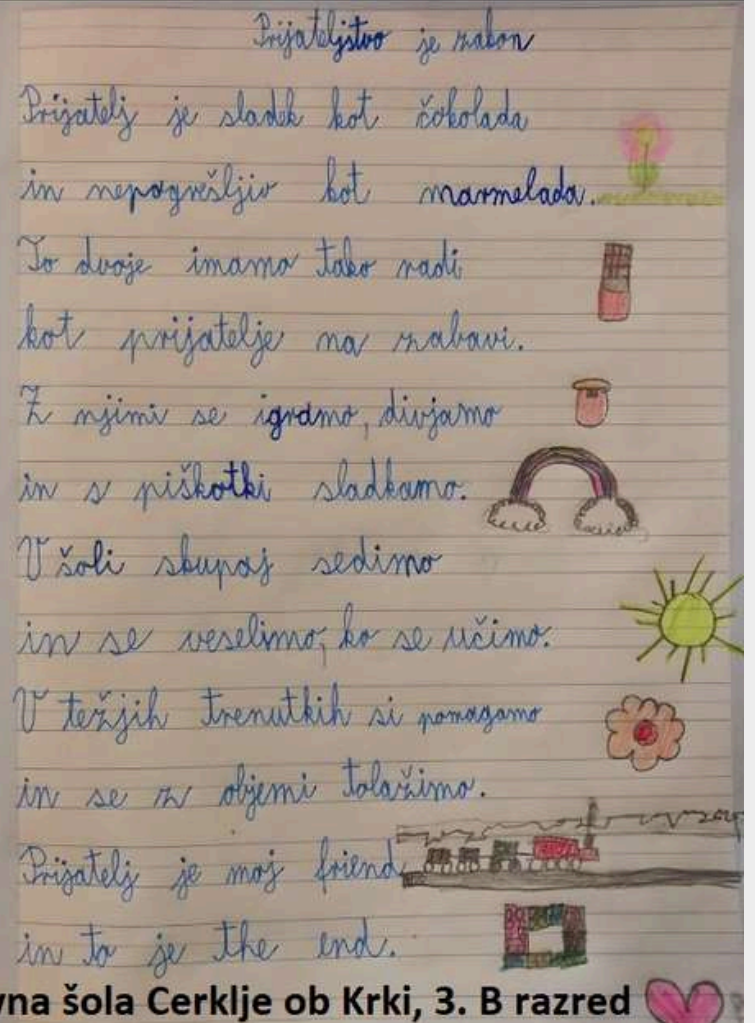 Prijateljstvo je zakon
Prijatelj je sladek kot čokolada
in nepogrešljiv kot marmelada.
To dvoje imamo tako radi
kot prijatelje na zabavi.
Z njimi se igramo, divjamo
in s piškotki sladkamo.
V šoli skupaj sedimo
in se veselimo, ko se učimo.
V težjih trenutkih si pomagamo
in se z objemi tolažimo.
Prijatelj je moj friend
in to je the end.
vna šola Cerklje ob Krki, 3. B razred